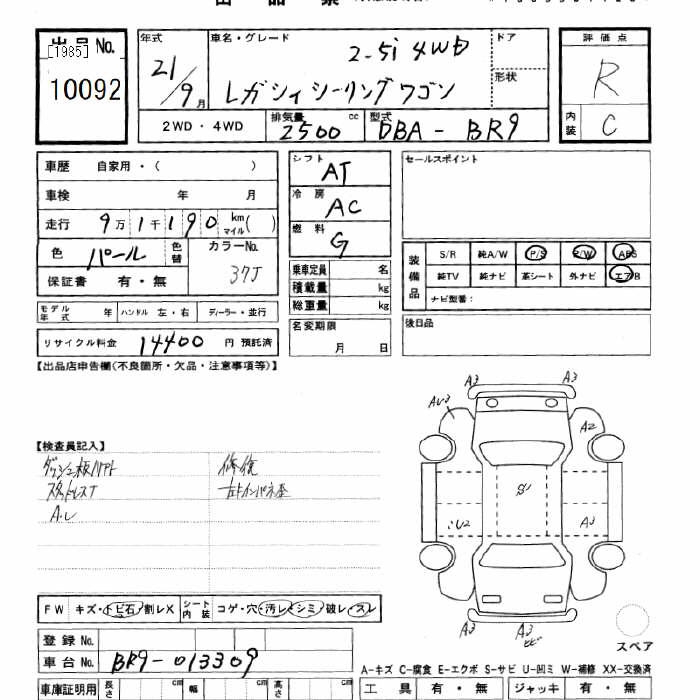 出品票
出品No.
[1985]
10092
年式
21/9月
車名・グレード
2-5i 4WD
レガシィシーリングワゴン
ドア
形状
2WD・4WD
排気量
2500 cc
型式
DBA-BR9
評価点
R
内装
C
車歴 自家用・( )
車検 年 月
走行 9万1千190 km マイル( )
色 パール 色替
カラーNo.
37J
保証書 有・無
モデル年式 年 ハンドル 左・右 ディーラー・並行
リサイクル料金 14400 円 預託済
シフト
AT
冷房
AC
燃料
G
乗車定員 名
積載量 kg
総重量 kg
名変期限
月 日
セールスポイント
装備品
S/R 純A/W P/S P/W ABS
純TV 純ナビ 革シート 外ナビ エアB
ナビ型番:
後日品
【出品店申告欄(不良箇所・欠品・注意事項等)】
【検査員記入】
修復
スタッドレスT
A.L
A3 A3
A2
S
U2 A3
A3 A3
スペア
FW キズ・トビ石・割レX シート内装 コゲ・穴・汚レ・シミ・破レ・スレ
登録No.
車台No. BR9-013309
車庫証明用 長さ cm 幅 cm 高さ cm
A-キズ C-腐食 E-エクボ S-サビ U-凹ミ W-補修 XX-交換済
工具 有・無 ジャッキ 有・無